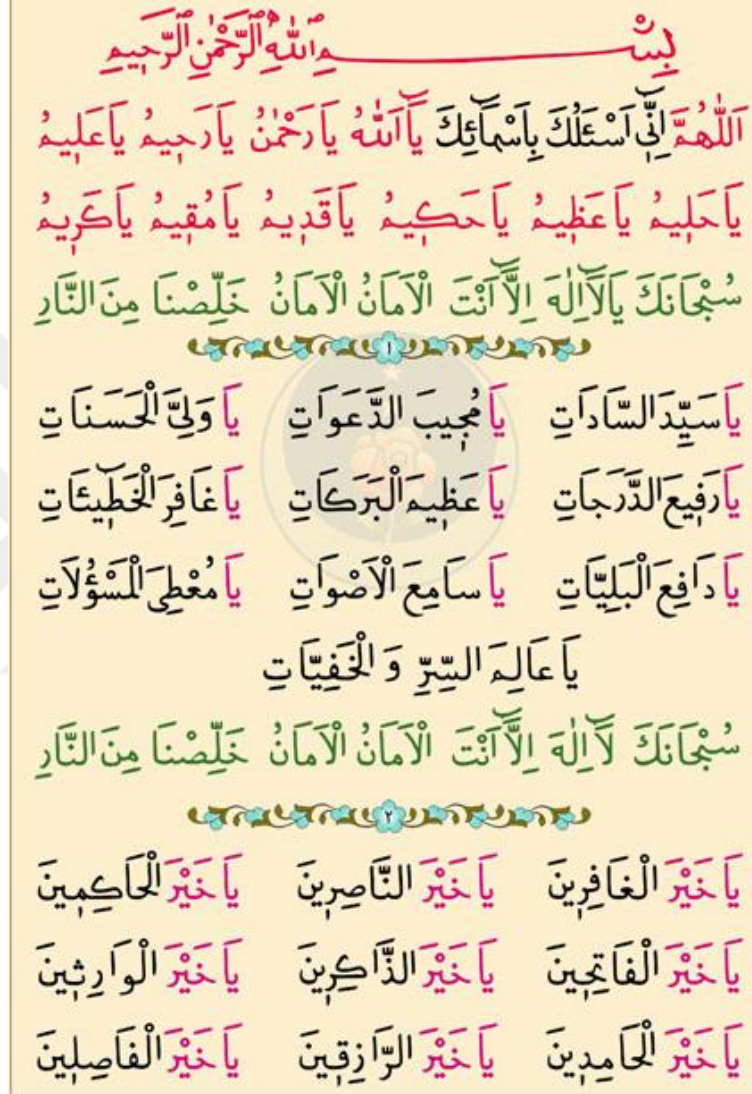 بِسْــــــمِ اللّٰهِ الرَّحْمٰنِ الرَّحِيمِ
اَللّٰهُمَّ اِنِّٓي اَسْئَلُكَ بِاَسْمَٓائِكَ يَٓا اَللّٰهُ يَا رَحْمٰنُ يَا رَحِيمُ يَا عَلِيمُ
يَا حَلِيمُ يَا عَظِيمُ يَا حَكِيمُ يَا قَدِيمُ يَا مُقِيمُ يَا كَرِيمُ
سُبْحَانَكَ يَا لَٓا اِلٰهَ اِلَّٓا اَنْتَ الْاَمَانُ الْاَمَانُ خَلِّصْنَا مِنَ النَّارِ
١
يَا سَيِّدَ السَّادَاتِ يَا مُجِيبَ الدَّعَوَاتِ يَا وَلِيَّ الْحَسَنَاتِ
يَا رَفِيعَ الدَّرَجَاتِ يَا عَظِيمَ الْبَرَكَاتِ يَا غَافِرَ الْخَطِٓيئَاتِ
يَا دَافِعَ الْبَلِيَّاتِ يَا سَامِعَ الْاَصْوَاتِ يَا مُعْطِيَ الْمَسْؤُلَاتِ
يَا عَالِمَ السِّرِّ وَ الْخَفِيَّاتِ
سُبْحَانَكَ لَٓا اِلٰهَ اِلَّٓا اَنْتَ الْاَمَانُ الْاَمَانُ خَلِّصْنَا مِنَ النَّارِ
٢
يَا خَيْرَ الْغَافِرِينَ يَا خَيْرَ النَّاصِرِينَ يَا خَيْرَ الْحَاكِمِينَ
يَا خَيْرَ الْفَاتِحِينَ يَا خَيْرَ الذَّاكِرِينَ يَا خَيْرَ الْوَارِثِينَ
يَا خَيْرَ الْحَامِدِينَ يَا خَيْرَ الرَّازِقِينَ يَا خَيْرَ الْفَاصِلِينَ